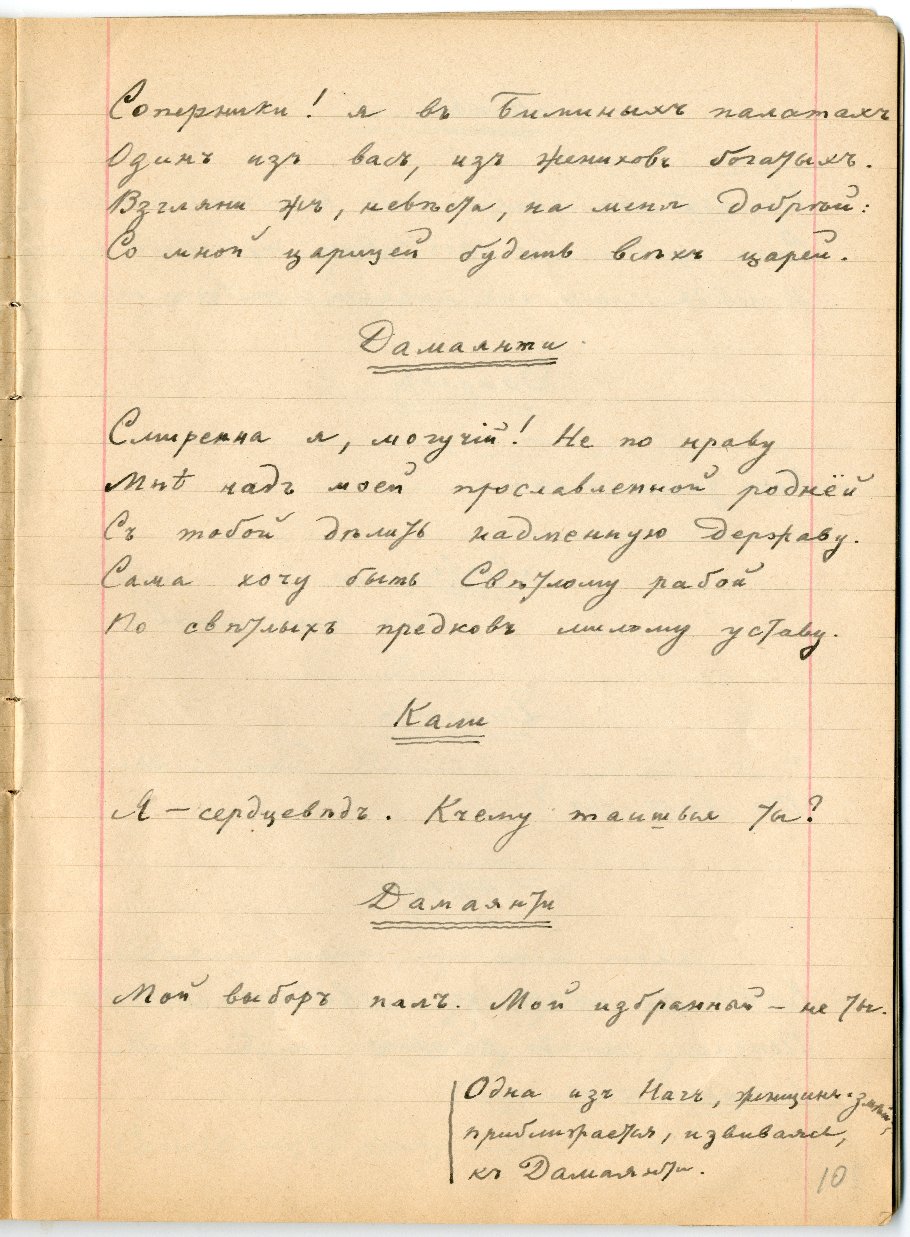 Соперники! я въ Биминыхъ палатахъ
Одинъ изъ васъ, изъ жениховъ богатыхъ.
Взгляни жъ, невѣста, на меня добрѣй:
Со мной царицей будешь всѣхъ царей.
Дамаянти
Смиренна я, могучій! Не по нраву
Мнѣ надъ моей прославленной роднёй
Съ тобой дѣлить надменную державу.
Сама хочу быть Свѣтлому рабой
По свѣтлыхъ предковъ милому уставу.
Кали
Я – сердцевѣдъ. Къчему таишься ты?
Дамаянти
Мой выборъ палъ. Мой избранный – не ты.
Одна изъ Нагъ, женщинъ-змѣй,
приближается, извиваясь,
къ Дамаянти.
10